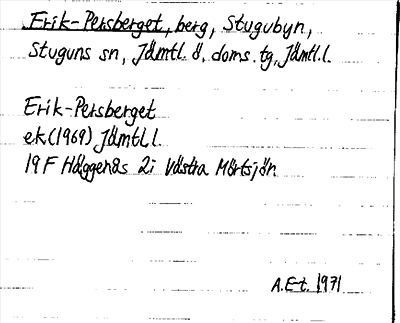 Erik-Persberget, berg, Stugubyn,
Stuguns sn, Jämtl. ö. doms. tg, Jämtl.l.
Erik-Persberget
ek.(1969) Jämtl.l.
19F Häggenås 2i Västra Mörtsjön
A.E-t. 1971